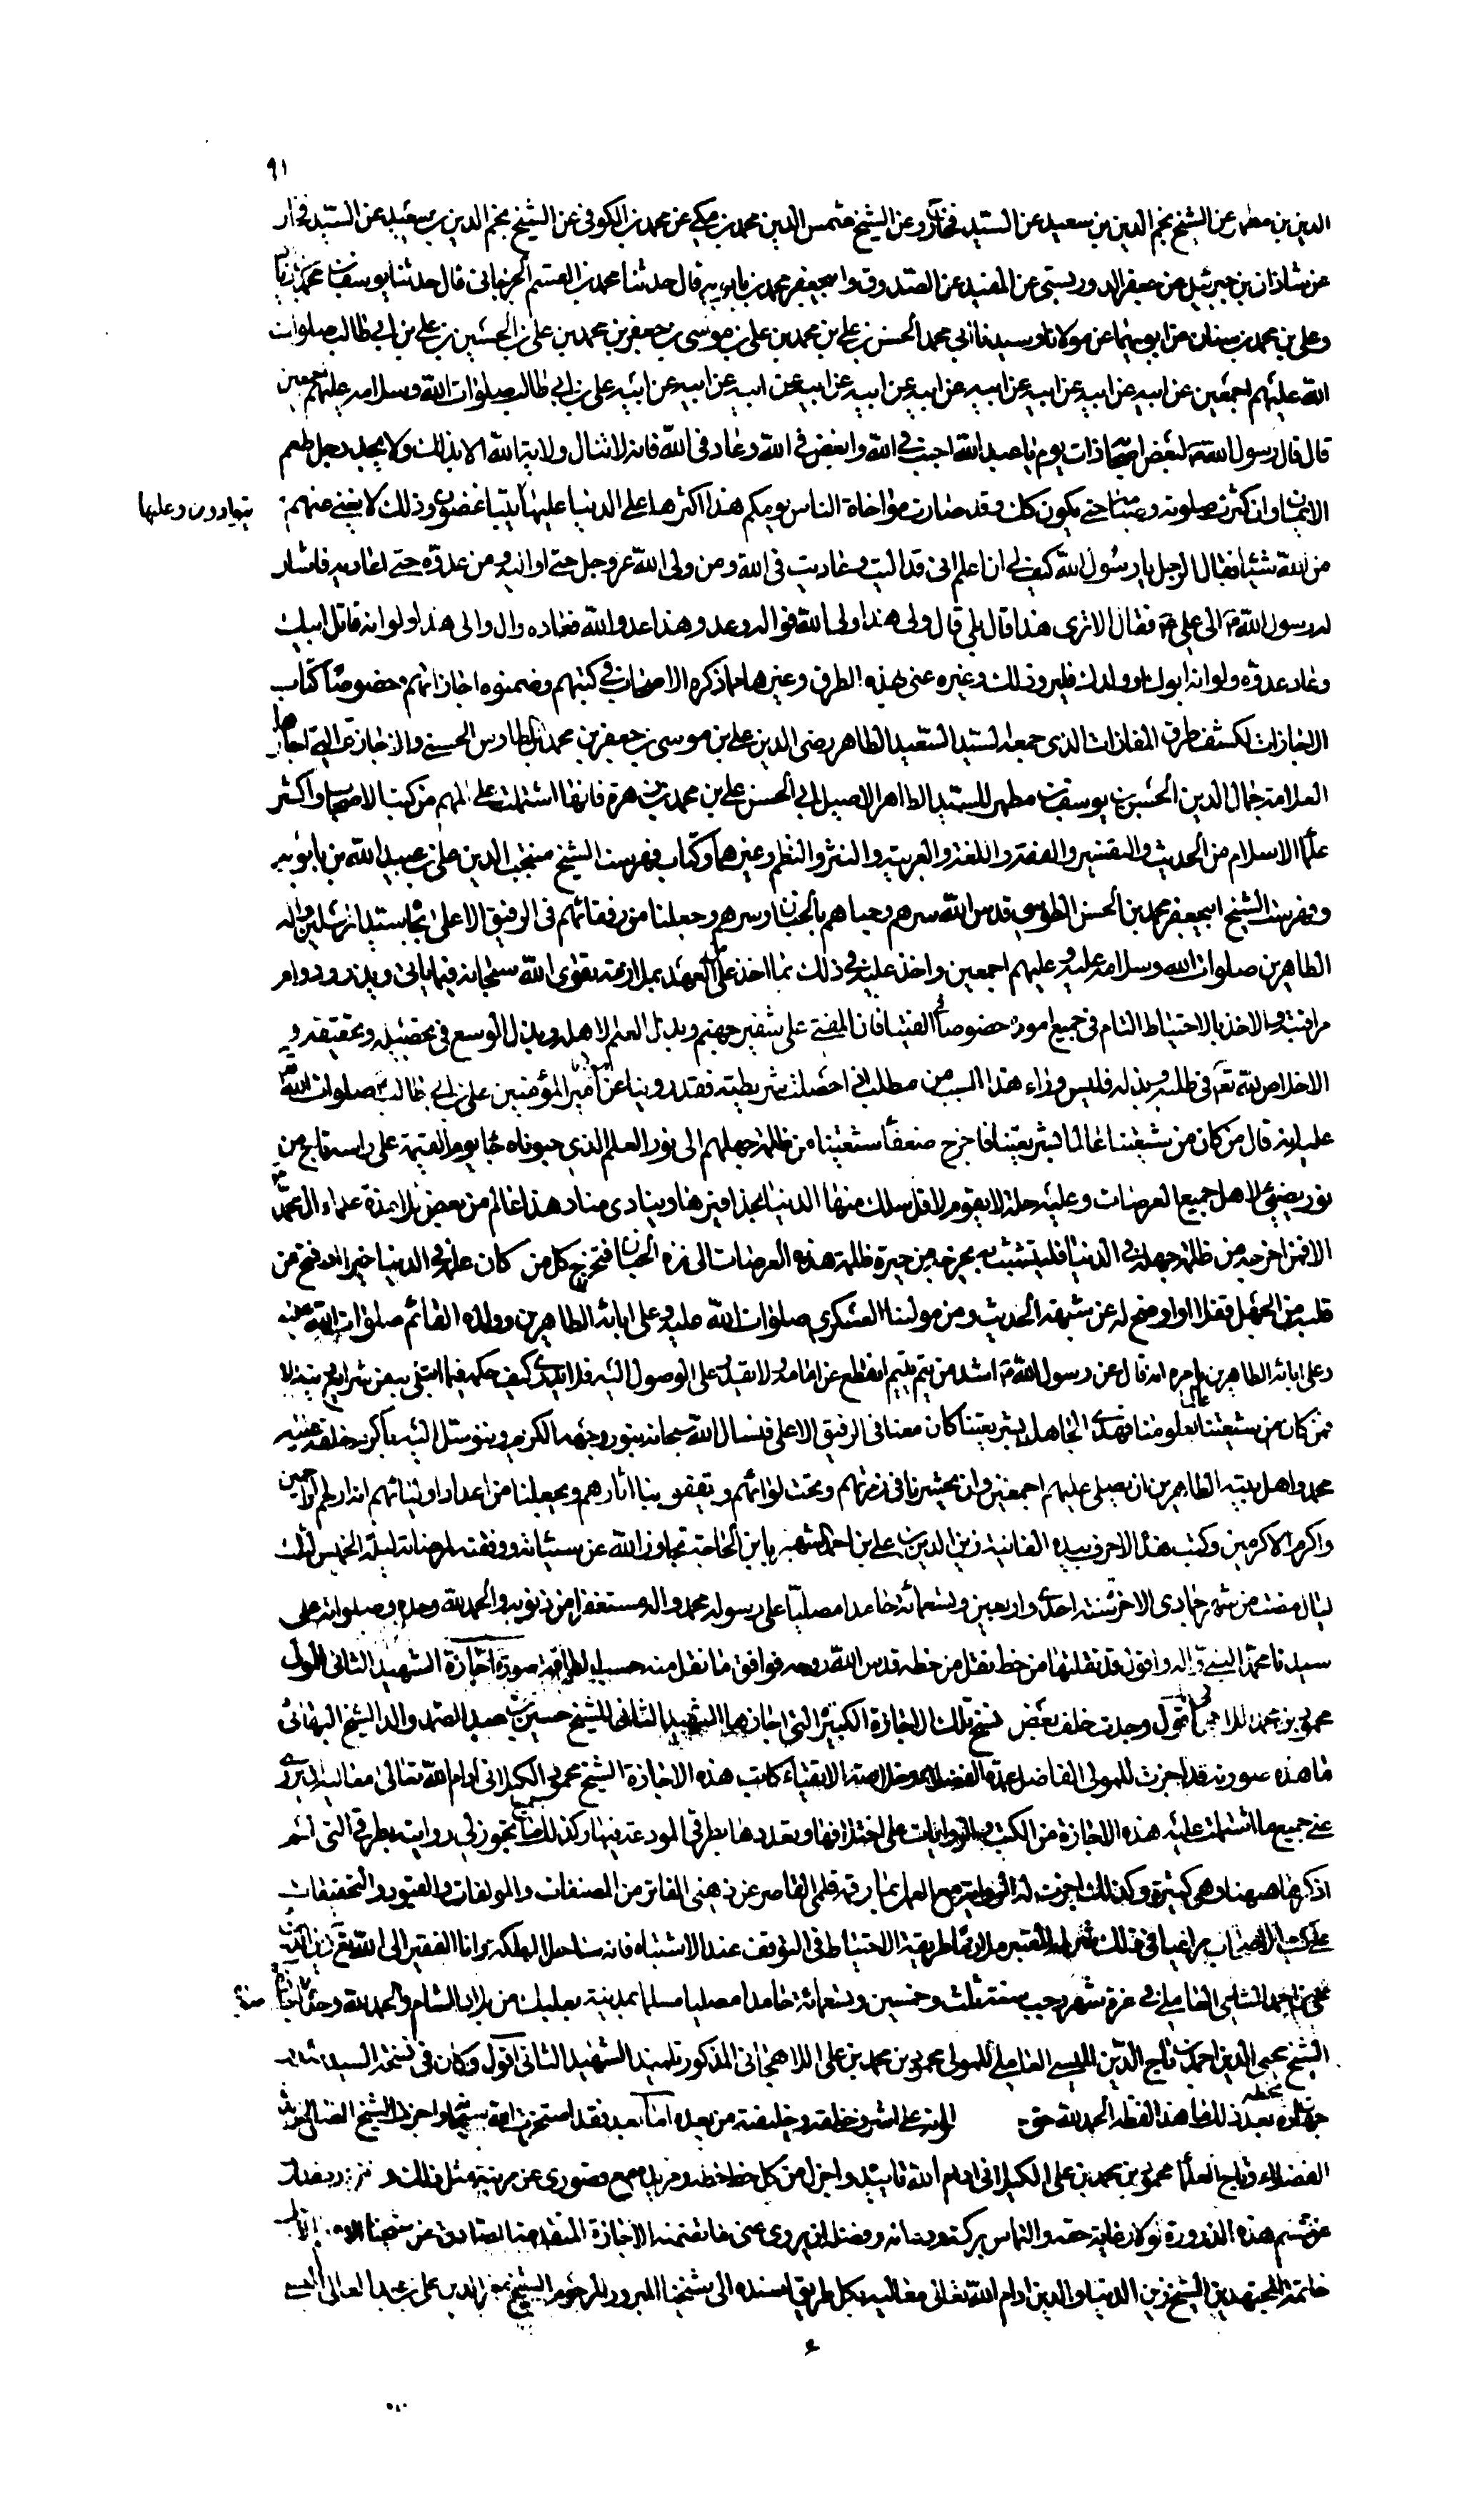 ٩١
الدين بن مطهر عن الشيخ نجم الدين بن سعيد عن السيد فخار وعن الشيخ شمس الدين محمد بن مكي عن محمد بن الكوفي عن الشيخ نجم الدين بن سعيد عن السيد فخار
عن شاذان بن جبرئيل عن جعفر الدوريستي عن المفيد عن الصدوق ابيجعفر محمد بن بابويه قال حدثنا محمد بن القسم الجرجاني قال حدثنا يوسف بن محمد بن زياد
وعلي بن محمد بن سنان عن ابويهما عن مولانا وسيدنا ابي محمد الحسن بن علي بن محمد بن علي بن موسى بن جعفر بن محمد بن علي بن الحسين بن علي بن ابي طالب صلوات
الله عليهم اجمعين عن ابيه عن ابيه عن ابيه عن ابيه عن ابيه عن ابيه عن ابيه عن ابيه عن ابيه علي بن ابي طالب صلوات الله وسلامه عليهم اجمعين
قال قال رسول الله ص لبعض اصحابه ذات يوم يا عبد الله احبب في الله وابغض في الله وعاد في الله فانه لا تنال ولاية الله الا بذلك ولا يجد رجل طعم
الايمان وان كثرت صلوته وصيامه حتى يكون كذلك وقد صارت مواخاة الناس يومكم هذا اكثرها على الدنيا عليها يتباغضون وذلك لا يغني عنهم
يتوادون وعليها
من الله شيئا فقال الرجل يا رسول الله كيف لي ان اعلم اني قد واليت وعاديت في الله ومن ولي الله عز وجل حتى اواليه ومن عدوه حتى اعاديه فاشار
له رسول الله ص الى علي ع فقال الا ترى هذا قال بلى قال ولي هذا ولي الله فواله وعدو هذا عدو الله فعاده وال والي هذا ولو انه قاتل ابيك
وعاد عدوه ولو انه ابوك او ولدك فليرو ذلك وغيره عني بهذه الطرق وغيرها مما ذكره الاصحاب في كتبهم وضمنوه اجازاتهم خصوصا كتاب
الاجازات لكشف طرق المفازات الذي جمعه السيد السعيد الطاهر رضي الدين علي بن موسى بن جعفر بن محمد بن الطاوس الحسني والاجازة التي اجازها
العلامة جمال الدين الحسن بن يوسف بن مطهر للسيد الطاهر الاصيل ابي الحسن علي بن محمد بن زهرة فانها اشتملت على المهم من كتب الاصحاب واكثر
علماء الاسلام من الحديث والتفسير والفقه واللغة والعربية والنثر والنظم وغيرها وكتاب فهرست الشيخ منتجب الدين علي بن عبيد الله بن بابويه
وفهرست الشيخ ابيجعفر محمد بن الحسن الطوسي قدس الله سرهم وحباهم بالجنان وسرهم وجعلنا من رفقائهم في الرفيق الاعلى بجاه سيد المرسلين واله
الطاهرين صلوات الله وسلامه عليه وعليهم اجمعين واخذ عليه في ذلك بما اخذ علي من العهد بملازمة تقوى الله سبحانه فيما ياتي ويذر ودوام
مراقبته والاخذ بالاحتياط التام في جميع اموره خصوصا في الفتيا فان المفتي على شفير جهنم وبذل العلم لاهله وبذل الوسع في تحصيله وتحقيقه و
الاخلاص لله تع في طلبه وبذله فليس وراء هذا السبب من مطلب ان حصلت شريطته فقد روينا عن مولينا امير المؤمنين علي بن ابي طالب صلوات الله
عليه انه قال من كان من شيعتنا عالما بشريعتنا فاخرج ضعفاء شيعتنا من ظلمة جهلهم الى نور العلم الذي حبوناه جاء يوم القيمة على راسه تاج من
نور يضيئ لاهل جميع العرصات وعليه حلة لا يقوم لاقل سلك منها الدنيا بحذافيرها وينادي مناد هذا عالم من بعض تلامذة علماء ال محمد
الا فمن اخرجه من ظلمة جهله في الدنيا فليتشبث به يخرجه من حيرة ظلمة هذه العرصات الى نزه الجنان فتخرج كل من كان علمه في الدنيا خيرا او فتح من
قلبه من الجهل قفلا او اوضح له عن شبهة الحديث وعن مولينا العسكري صلوات الله عليه وعلى ابائه الطاهرين وولده القائم صلوات الله عليه
وعلى ابائه الطاهرين بامره انه قال عن رسول الله ص اشد من يتم يتيم انقطع عن امامه ولا يقدر على الوصول اليه فلا يدري كيف حكمه فيما ابتلى به من شرايع دينه الا
فمن كان من شيعتنا عالما بعلومنا فهدى الجاهل بشريعتنا كان معنا في الرفيق الاعلى فنسال الله سبحانه بنور وجهه الكريم ونتوسل اليه باكرم خلقه عليه
محمد واهل بيته الطاهرين ان يصلي عليهم اجمعين وان يحشرنا في زمرتهم وتحت لوائهم ويقفو بنا اثارهم ويجعلنا من اعداد اوليائهم انه ارحم الراحمين
واكرم الاكرمين وكتب هذه الاحرف بيده الفانية زين الدين بن علي بن احمد شهر بابن الحاجة تجاوز الله عن سيئاته ووفقه لمرضاته ليلة الخميس لثلث
ليال مضت من شهر جمادي الاخر سنة احدى واربعين وتسعمائة حامدا مصليا على رسوله محمد واله مستغفرا من ذنوبه والحمد لله وحده وصلواته على
سيدنا محمد النبي واله واقول قد نقلتها من خط نقل من خطه قدس الله روحه فوافق ما نقل منه حسب الطاقة صورة اجازة الشهيد الثاني للمولى
محمود بن محمد اللاهجاني اقول وجدت خلف بعض نسخ تلك الاجازة الكبيرة التي اجازها الشهيد الثاني للشيخ حسين بن عبد الصمد والد الشيخ البهائي
ما هذه صورته قد اجزت للمولى الفاضل عمدة الفضلاء وخلاصة الاتقياء كاتب هذه الاجازة الشيخ محمود الكيلاني ادام الله تعالى معاليه ان يروي
عني جميع ما اشتملت عليه هذه الاجازة من الكتب والروايات على اختلافها وتعددها بطرقي المودعة فيها وكذلك جميع ما يجوز لي روايته بطرقي التي لم
اذكرها ههنا وهي كثيرة وكذلك اجزت له الرواية مع العمل بما رقمه قلمي القاصر عن ذهني الفاتر من المصنفات والمؤلفات والقيود والتحقيقات
على كتب الاصحاب مراعيا في ذلك شرايطه المعتبر ملازما طريقة الاحتياط في التوقف عند الاشتباه فانه ساحل الهلكة وانا الفقير الى الله تع زين الدين
علي بن احمد الشامي العاملي في غرة شهر رجب سنة ثلث وخمسين وتسعمائة حامدا مصليا مسلما بمدينة بعلبك من بلاد الشام والحمد لله وحده
الشيخ محيي الدين احمد بن تاج الدين الميسي العاملي للمولى محمود بن محمد بن علي اللاهجاني المذكور تلميذ الشهيد الثاني اقول وكان في نسخة السيد
بعد ذلك ما هذا لفظه الحمد لله حق على اشرف خلقه وخليفته من بعده اما بعد فقد استخرت الله سبحانه واجزت الشيخ الصالح
الفضلاء وتاج العلماء محمود بن محمد بن علي الكيلاني ادام الله تاييده واجزل من كل خط حظه ومزيده مع قصوري عن مرتبة مثل ذلك و
عن تسنم هذه الذروة لولا رعاية حقه والتماس بركة دعائه وفضله ان يروي عني ما تضمنه الاجازة المتقدمة الصادرة عن شيخنا
خاتمة المجتهدين الشيخ زين الدنيا والدين ادام الله تعالى معاليه بكل طريق اسنده الى شيخنا المبرور المرحوم الشيخ نور الدين علي بن عبد العالي الميسي